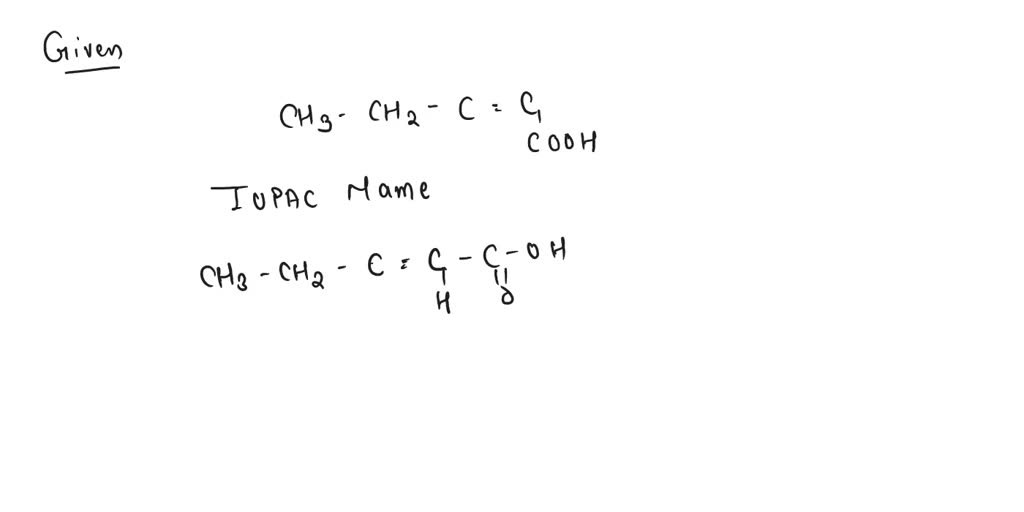 Given
CH3 - CH2 - C = C
COOH
IUPAC Name
CH3 - CH2 - C = C - C - OH
H O